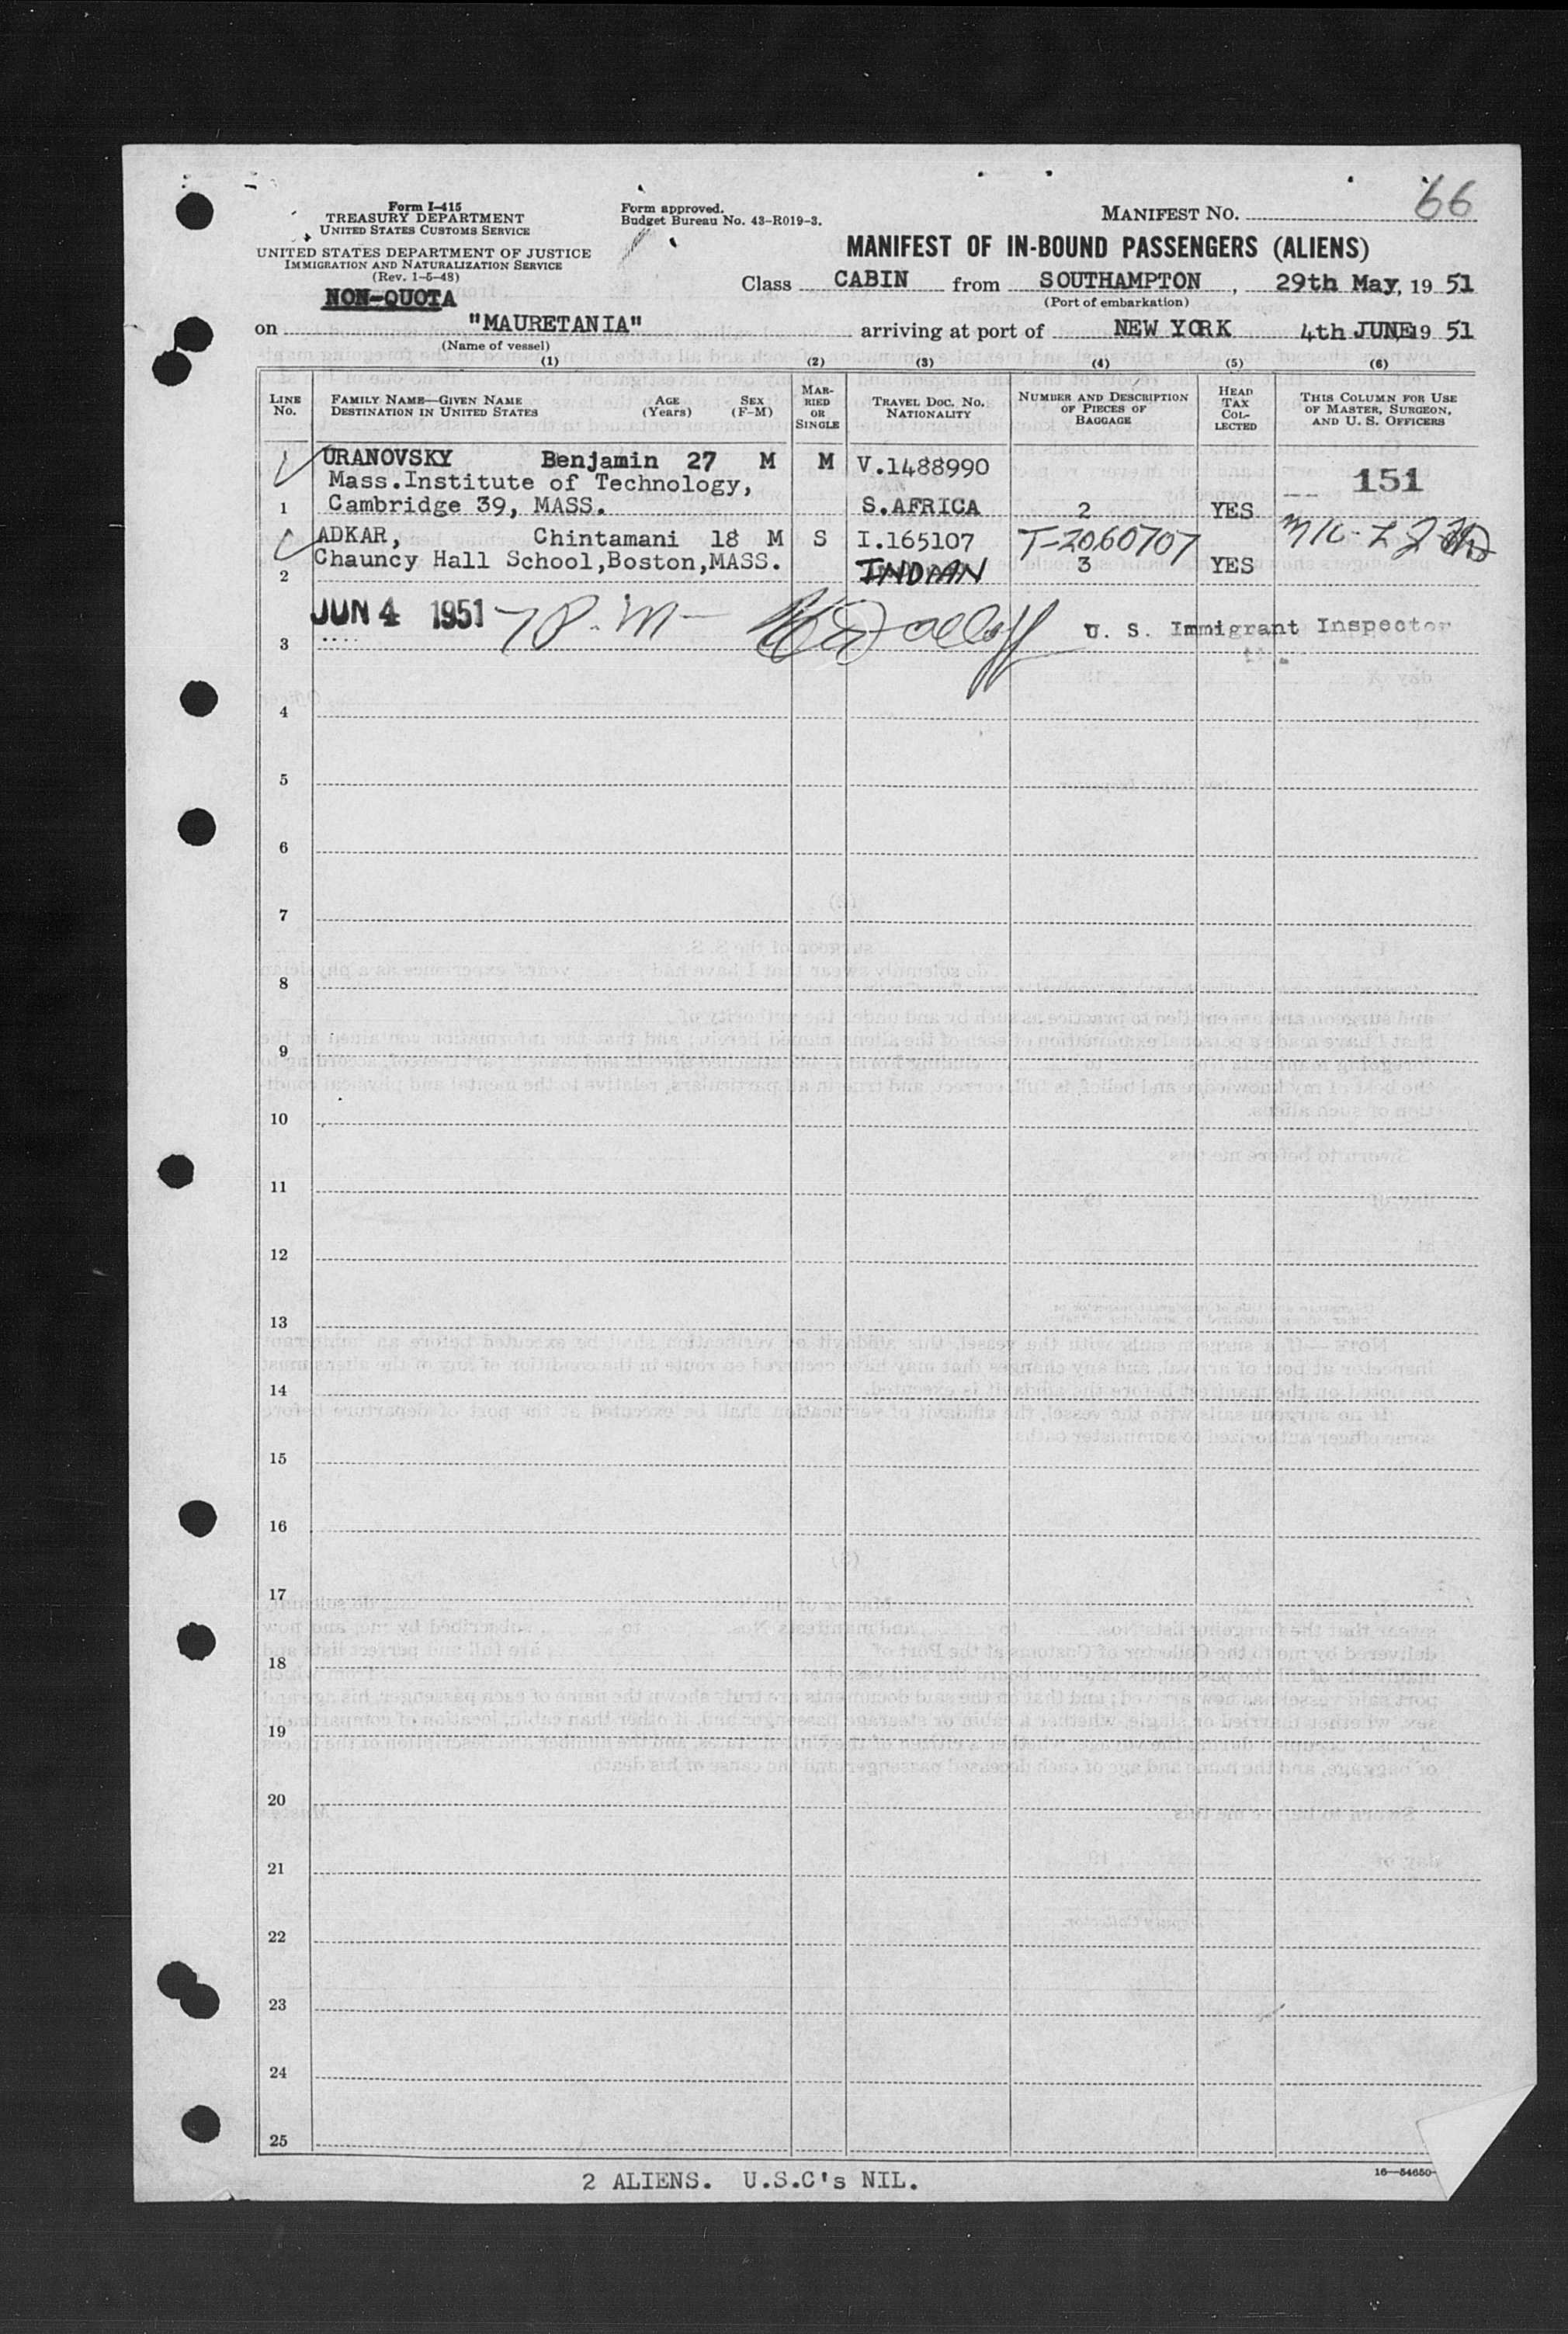 66
Form I-415
TREASURY DEPARTMENT
UNITED STATES CUSTOMS SERVICE
UNITED STATES DEPARTMENT OF JUSTICE
IMMIGRATION AND NATURALIZATION SERVICE
(Rev. 1-5-48)
Form approved.
Budget Bureau No. 43-R019-3.
MANIFEST NO.
MANIFEST OF IN-BOUND PASSENGERS (ALIENS)
NON-QUOTA
Class CABIN from SOUTHAMPTON, 29th May, 19 51
(Port of embarkation)
on "MAURETANIA" arriving at port of NEW YORK 4th JUNE, 19 51
(Name of vessel)
(1) (2) (3) (4) (5) (6)
LINE No.
FAMILY NAME—GIVEN NAME
DESTINATION IN UNITED STATES
AGE (Years)
SEX (F-M)
MARRIED OR SINGLE
TRAVEL DOC. NO. NATIONALITY
NUMBER AND DESCRIPTION OF PIECES OF BAGGAGE
HEAD TAX COLLECTED
THIS COLUMN FOR USE OF MASTER, SURGEON, AND U. S. OFFICERS
URANOVSKY Benjamin 27 M M V.1488990
Mass.Institute of Technology, 151
1 Cambridge 39, MASS. S.AFRICA 2 YES
ADKAR, Chintamani 18 M S I.165107 T-2060707
Chauncy Hall School,Boston,MASS. INDIAN 3 YES
2
JUN 4 1951 7 P.M U. S. Immigrant Inspector
3
4
5
6
7
8
9
10
11
12
13
14
15
16
17
18
19
20
21
22
23
24
25
2 ALIENS. U.S.C's NIL.
16—54650-